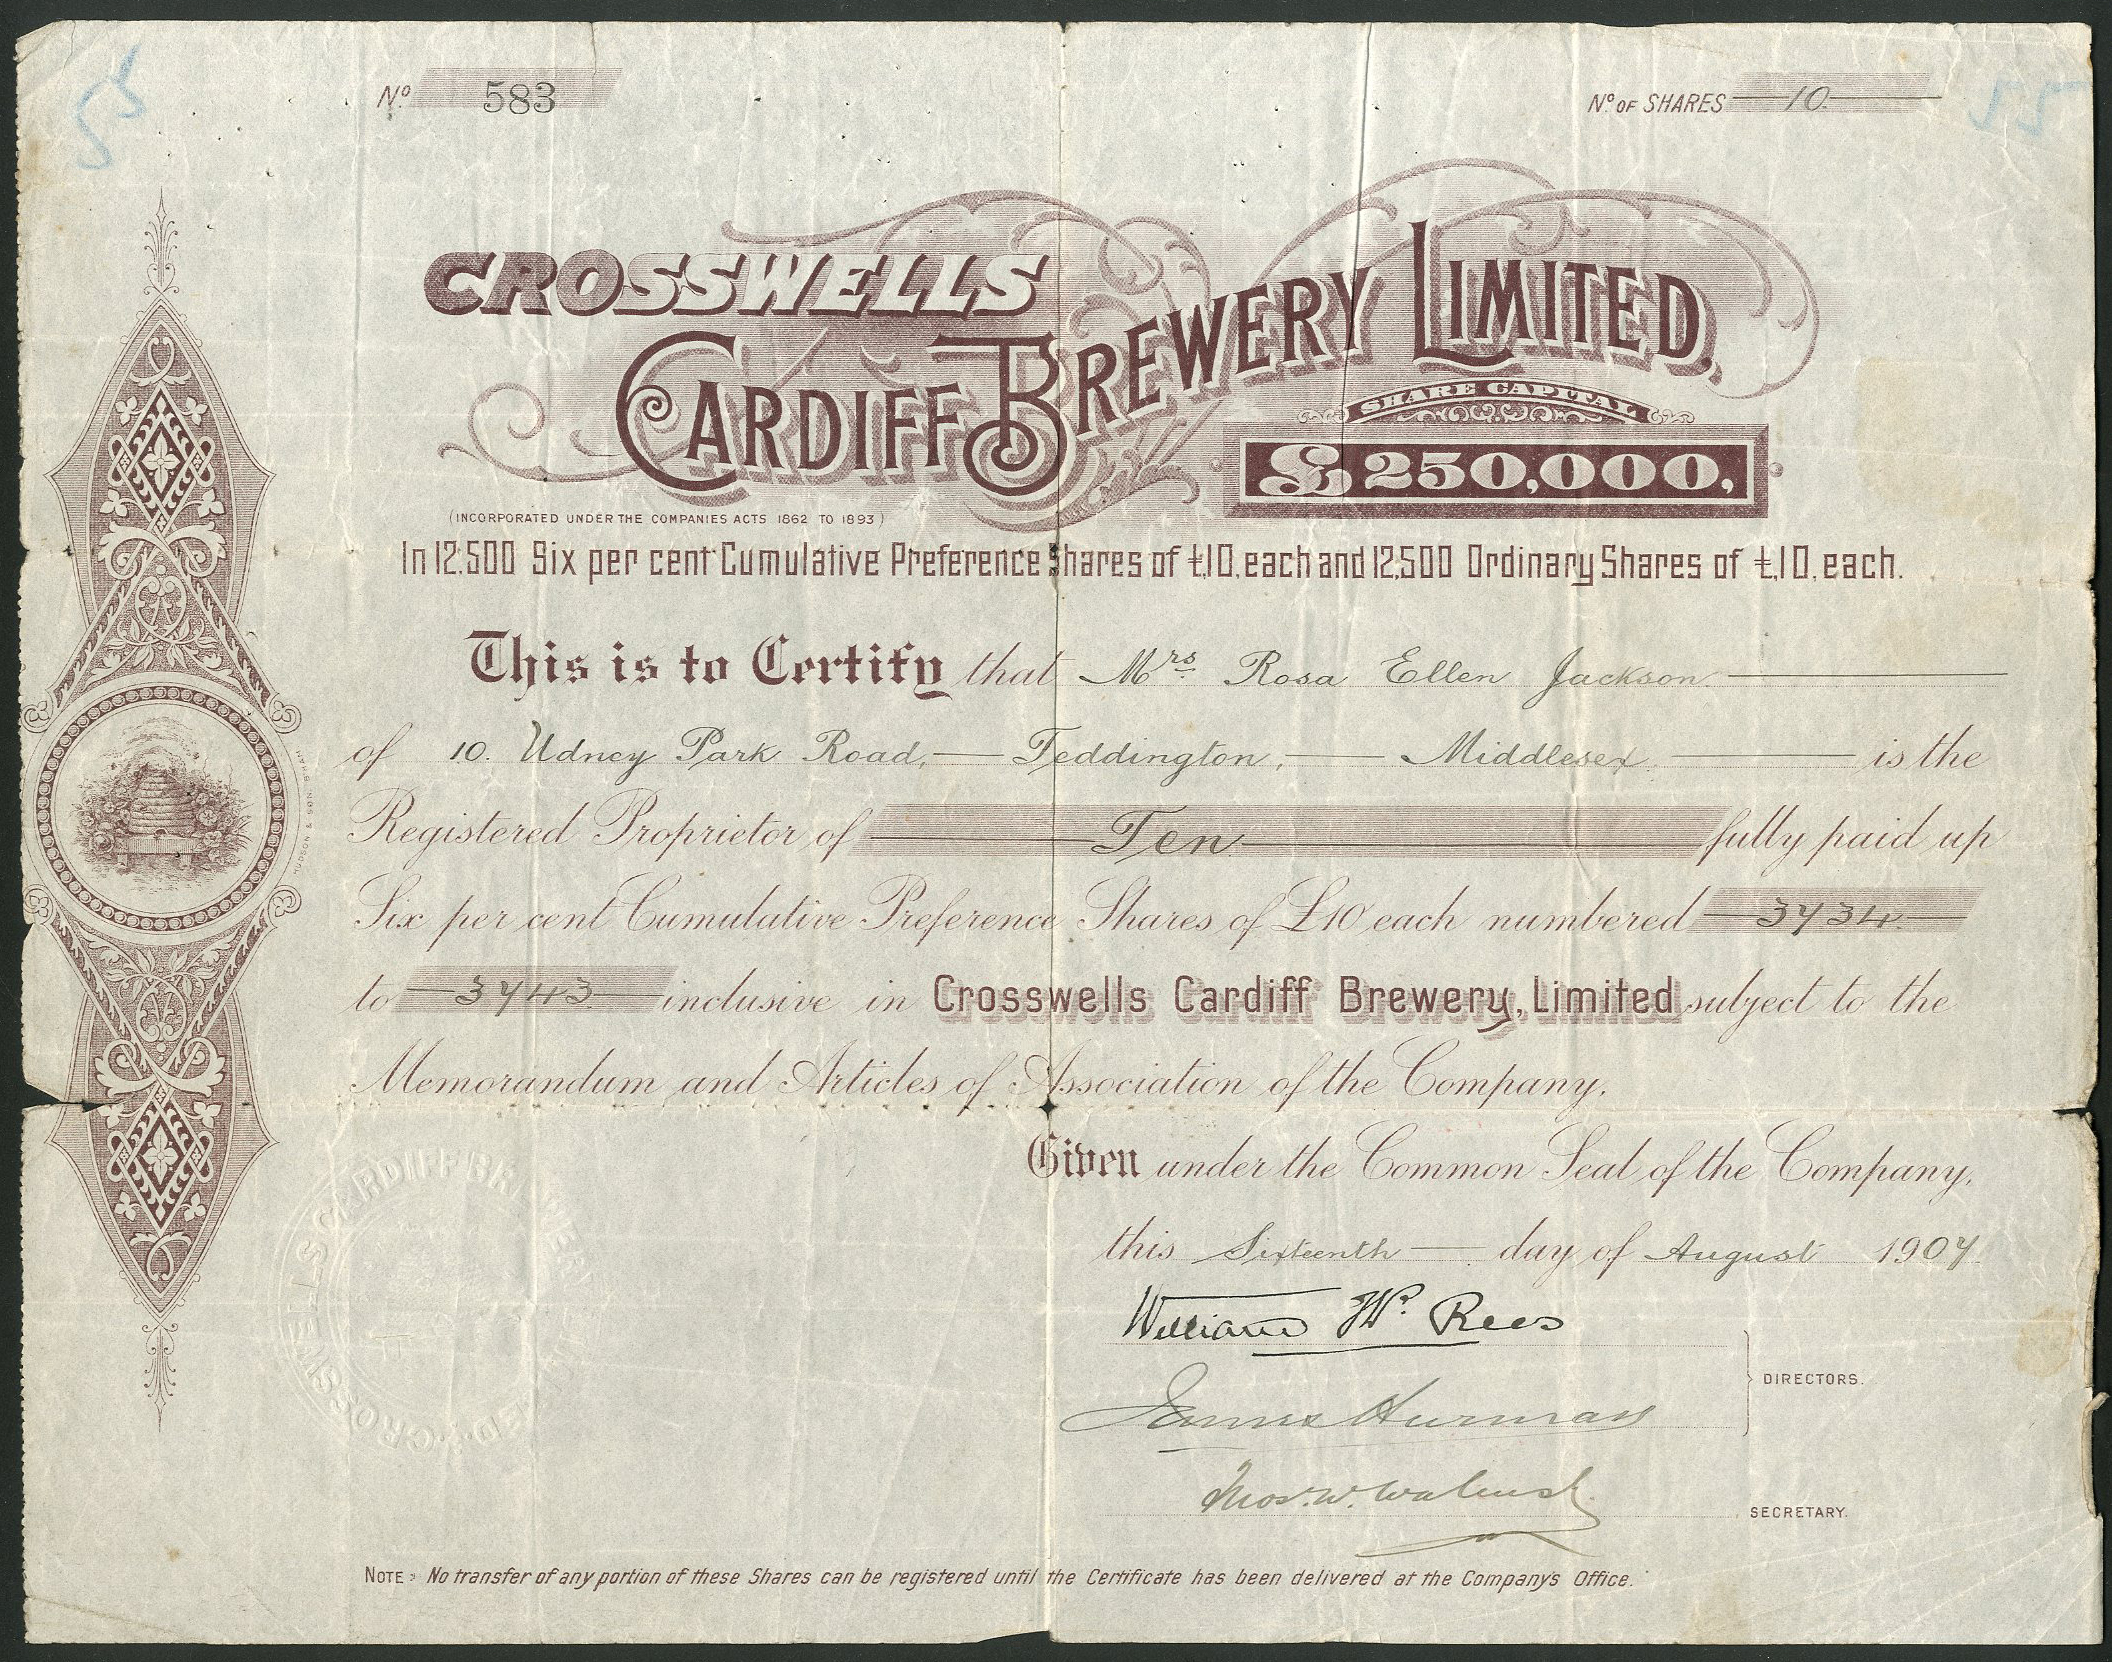 Nº 583
Nº OF SHARES 10
CROSSWELLS
CARDIFF BREWERY LIMITED,
SHARE CAPITAL
£250,000,
(INCORPORATED UNDER THE COMPANIES ACTS 1862 TO 1893)
In 12,500 Six per cent Cumulative Preference Shares of £10, each and 12,500 Ordinary Shares of £10, each.
This is to Certify that Mrs Rosa Ellen Jackson
of 10. Udney Park Road, Teddington, Middlesex is the
Registered Proprietor of Ten fully paid up
Six per cent Cumulative Preference Shares of £10 each numbered 3734
to 3743 inclusive in Crosswells Cardiff Brewery, Limited subject to the
Memorandum and Articles of Association of the Company.
Given under the Common Seal of the Company,
this Sixteenth day of August 1907.
William Hy. Rees
James Hurman
DIRECTORS.
Thos. W.
SECRETARY.
NOTE: No transfer of any portion of these Shares can be registered until the Certificate has been delivered at the Company's Office.
HUDSON & SON, B'HAM
CROSSWELLS CARDIFF BREWERY